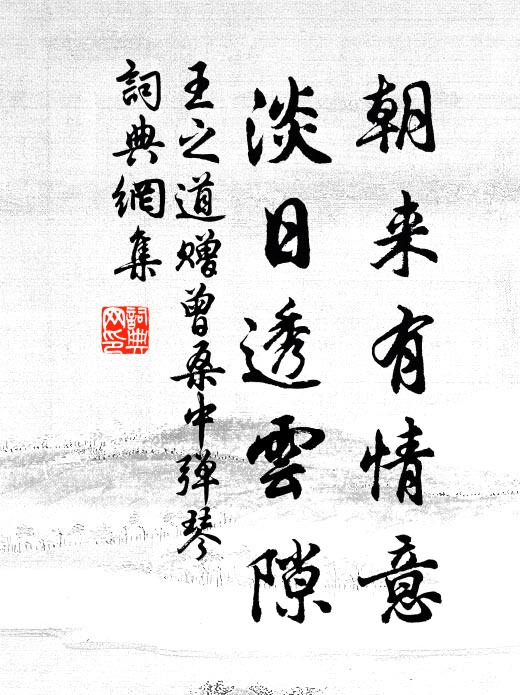 朝来有情意
淡日透雲隙
王之道赠曾桑中弹琴
詞典網集
詞典网印